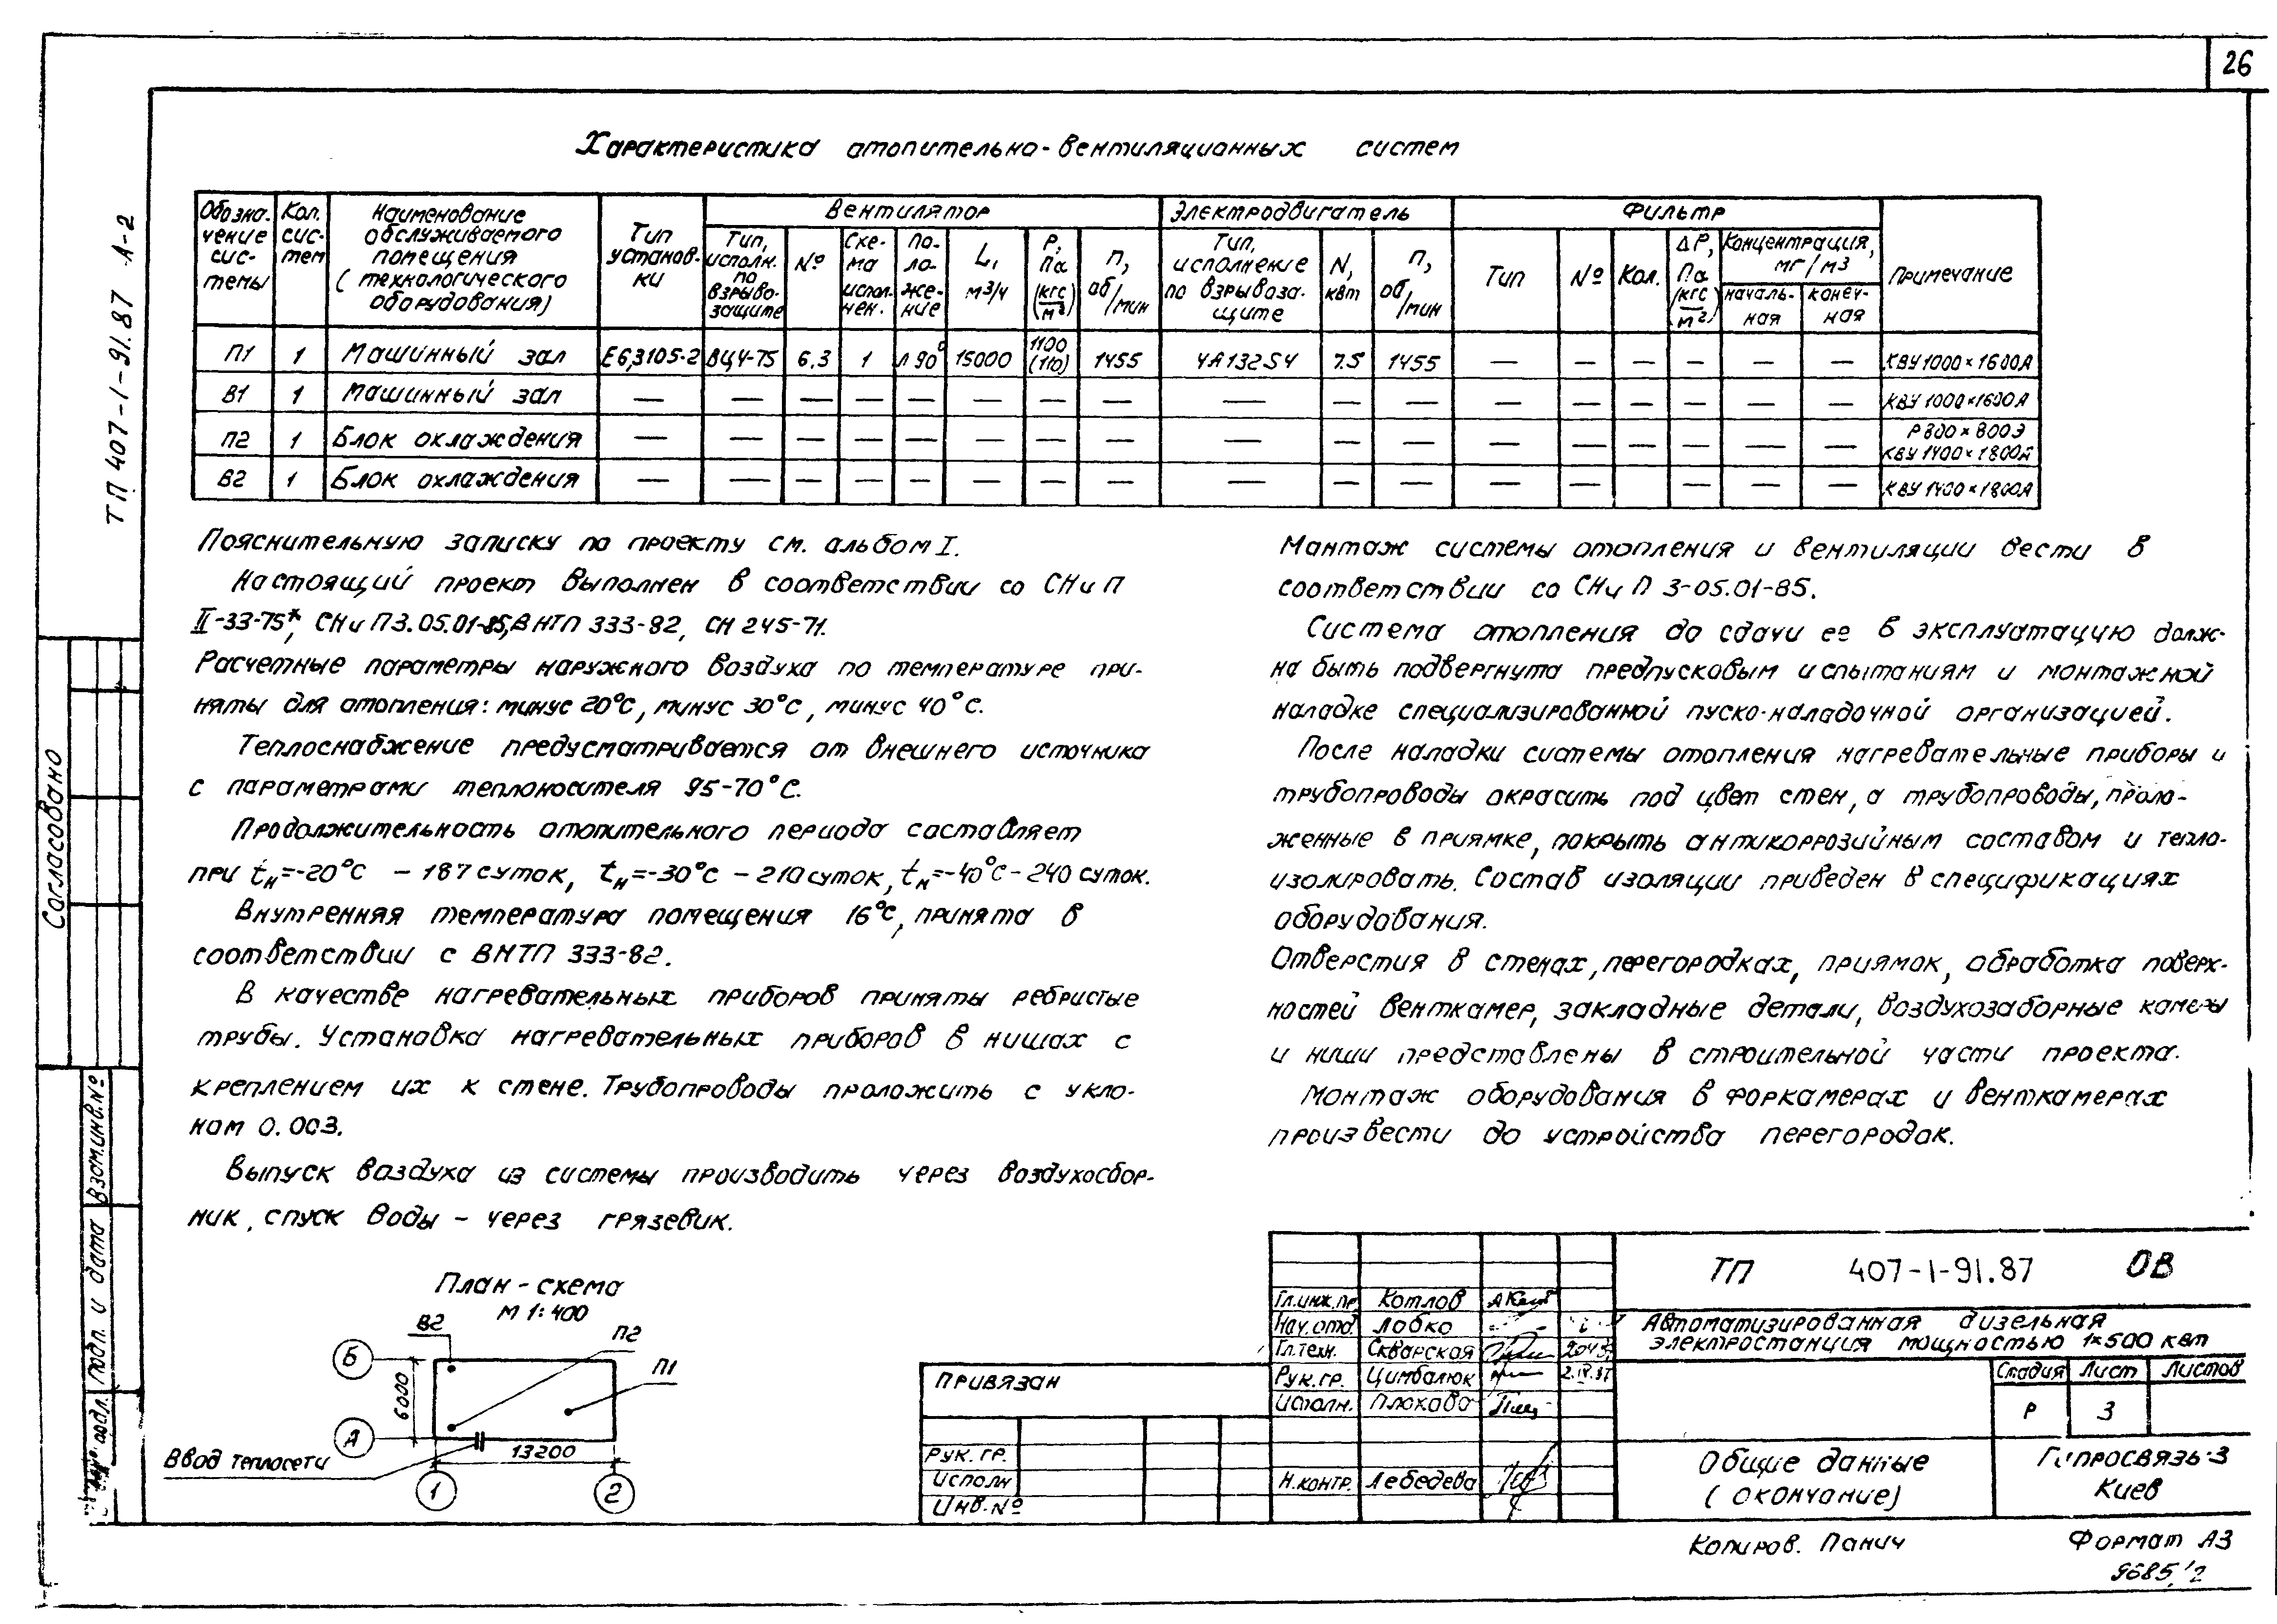 26
Характеристика отопительно-вентиляционных систем
Обозна-чение сис-темы | Кол. сис-тем | Наименование обслуживаемого помещения (технологического оборудования) | Тип установ-ки | Вентилятор | Электродвигатель | Фильтр | Примечание
Тип, исполн. по взрыво-защите | № | Схе-ма испол-нен. | По-ло-же-ние | L, м3/ч | Р, Па (кгс/м2) | n, об/мин | Тип, исполнение по взрывоза-щите | N, квт | n, об/мин | Тип | № | Кол. | ΔР, Па (кгс/м2) | Концентрация, мг/м3 | началь-ная | конеч-ная
П1 | 1 | Машинный зал | Е6,3105-2 | ВЦ4-75 | 6,3 | 1 | Л 90° | 15000 | 1100 (110) | 1455 | 4А132S4 | 7.5 | 1455 | — | — | — | — | — | — | КВУ 1000×1600А
В1 | 1 | Машинный зал | — | — | — | — | — | — | — | — | — | — | — | — | — | — | — | — | — | КВУ 1000×1600А
П2 | 1 | Блок охлаждения | — | — | — | — | — | — | — | — | — | — | — | — | — | — | — | — | — | Р 800×800Э КВУ 1400×1800А
В2 | 1 | Блок охлаждения | — | — | — | — | — | — | — | — | — | — | — | — | — | | — | — | — | КВУ 1400×1800А
Пояснительную записку по проекту см. альбом I.
Настоящий проект выполнен в соответствии со СНиП
II-33-75*, СНиП 3.05.01-85, ВНТП 333-82, СН 245-71.
Расчетные параметры наружного воздуха по температуре при-
няты для отопления: минус 20°С, минус 30°С, минус 40°С.
Теплоснабжение предусматривается от внешнего источника
с параметрами теплоносителя 95-70°С.
Продолжительность отопительного периода составляет
при tн=-20°С – 187 суток, tн=-30°С – 210 суток, tн=-40°С – 240 суток.
Внутренняя температура помещения 16°С, принята в
соответствии с ВНТП 333-82.
В качестве нагревательных приборов приняты ребристые
трубы. Установка нагревательных приборов в нишах с
креплением их к стене. Трубопроводы проложить с укло-
ном 0.003.
Выпуск воздуха из системы производить через воздухосбор-
ник, спуск воды – через грязевик.
Монтаж системы отопления и вентиляции вести в
соответствии со СНиП 3-05.01-85.
Система отопления до сдачи ее в эксплуатацию долж-
на быть подвергнута предпусковым испытаниям и монтажной
наладке специализированной пуско-наладочной организацией.
После наладки системы отопления нагревательные приборы и
трубопроводы окрасить под цвет стен, а трубопроводы, проло-
женные в приямке, покрыть антикоррозийным составом и тепло-
изолировать. Состав изоляции приведен в спецификациях
оборудования.
Отверстия в стенах, перегородках, приямок, обработка поверх-
ностей венткамер, закладные детали, воздухозаборные камеры
и ниши представлены в строительной части проекта.
Монтаж оборудования в форкамерах и венткамерах
произвести до устройства перегородок.
План-схема
М 1:400
В2
П2
П1
Б
А
6000
13200
Ввод теплосети
1
2
Привязан
Рук. гр.
Исполн
Инв. №
Гл.инж.пр | Котлов
Нач.отд. | Лобко
Гл.техн. | Скварская
Рук.гр. | Цимбалюк
Исполн. | Плохова
Н.контр. | Лебедева
ТП 407-1-91.87 ОВ
Автоматизированная дизельная
электростанция мощностью 1×500 квт
Стадия | Лист | Листов
Р | 3
Общие данные
(окончание)
Гипросвязь-3
Киев
Копиров. Панич
Формат А3
9685/2
ТП 407-1-91.87 А-2
Согласовано
Взам.инв.№
Подп. и дата